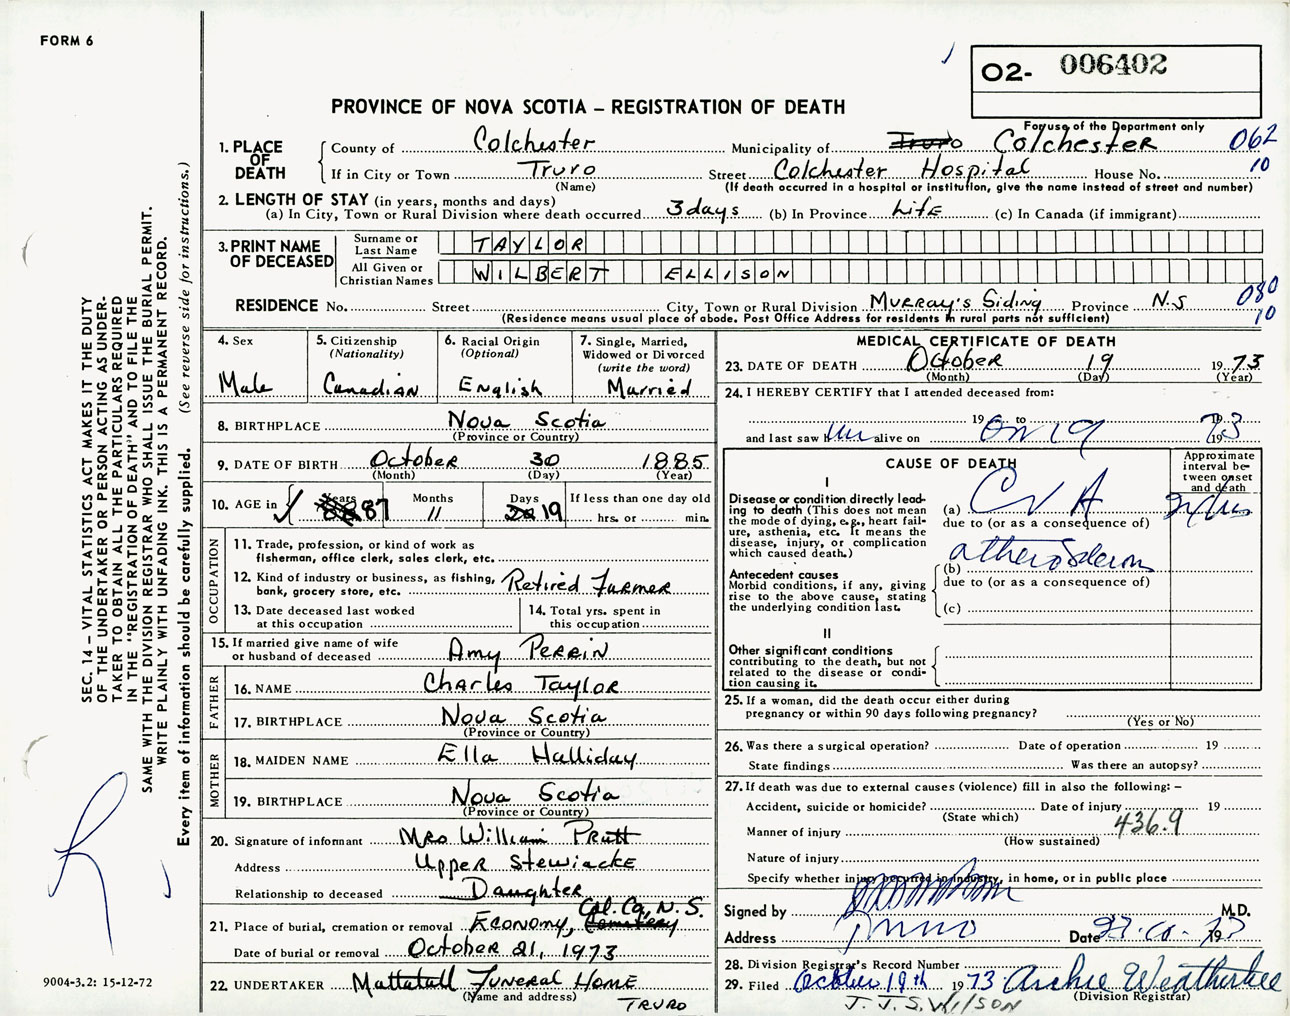 FORM 6
O2- 006402
PROVINCE OF NOVA SCOTIA – REGISTRATION OF DEATH
For use of the Department only
1. PLACE OF DEATH
County of Colchester Municipality of Truro Colchester 062
If in City or Town Truro Street Colchester Hospital House No. 10
(Name) (If death occurred in a hospital or institution, give the name instead of street and number)
2. LENGTH OF STAY (in years, months and days)
(a) In City, Town or Rural Division where death occurred 3 days (b) In Province Life (c) In Canada (if immigrant)
3. PRINT NAME OF DECEASED
Surname or Last Name TAYLOR
All Given or Christian Names WILBERT ELLISON
RESIDENCE No. Street City, Town or Rural Division Murray's Siding Province N.S 080
(Residence means usual place of abode. Post Office Address for residents in rural parts not sufficient) 10
4. Sex
Male
5. Citizenship
(Nationality)
Canadian
6. Racial Origin
(Optional)
English
7. Single, Married,
Widowed or Divorced
(write the word)
Married
8. BIRTHPLACE Nova Scotia
(Province or Country)
9. DATE OF BIRTH October 30 1885
(Month) (Day) (Year)
10. AGE in Years Months Days If less than one day old
87 11 19 hrs. or min.
OCCUPATION
11. Trade, profession, or kind of work as
fisherman, office clerk, sales clerk, etc.
12. Kind of industry or business, as fishing,
bank, grocery store, etc. Retired Farmer
13. Date deceased last worked
at this occupation
14. Total yrs. spent in
this occupation
15. If married give name of wife
or husband of deceased Amy Perrin
FATHER
16. NAME Charles Taylor
17. BIRTHPLACE Nova Scotia
(Province or Country)
MOTHER
18. MAIDEN NAME Ella Halliday
19. BIRTHPLACE Nova Scotia
(Province or Country)
20. Signature of informant Mrs William Pratt
Address Upper Stewiacke
Relationship to deceased Daughter
21. Place of burial, cremation or removal Economy, Cemetery Col. Co, N.S.
Date of burial or removal October 21, 1973
22. UNDERTAKER Mattatall Funeral Home
(Name and address)
TRURO
MEDICAL CERTIFICATE OF DEATH
23. DATE OF DEATH October 19 1973
(Month) (Day) (Year)
24. I HEREBY CERTIFY that I attended deceased from:
19 to 19
and last saw him alive on 19 73
CAUSE OF DEATH
Approximate
interval be-
tween onset
and death
I
Disease or condition directly lead-
ing to death (This does not mean
the mode of dying, e.g., heart fail-
ure, asthenia, etc. It means the
disease, injury, or complication
which caused death.)
(a) CVA
due to (or as a consequence of)
Antecedent causes
Morbid conditions, if any, giving
rise to the above cause, stating
the underlying condition last.
(b)
due to (or as a consequence of)
(c)
II
Other significant conditions
contributing to the death, but not
related to the disease or condi-
tion causing it.
25. If a woman, did the death occur either during
pregnancy or within 90 days following pregnancy?
(Yes or No)
26. Was there a surgical operation? Date of operation 19
State findings Was there an autopsy?
27. If death was due to external causes (violence) fill in also the following: –
Accident, suicide or homicide? Date of injury 19
(State which)
Manner of injury 436.9
(How sustained)
Nature of injury
Specify whether injury occurred in industry, in home, or in public place
Signed by M.D.
Address Truro Date 19
28. Division Registrar's Record Number
29. Filed October 19th 1973 Archie Weatherbee
(Division Registrar)
J.J.S. Wilson
SEC. 14 – VITAL STATISTICS ACT MAKES IT THE DUTY
OF THE UNDERTAKER OR PERSON ACTING AS UNDER-
TAKER TO OBTAIN ALL THE PARTICULARS REQUIRED
IN THE "REGISTRATION OF DEATH" AND TO FILE THE
SAME WITH THE DIVISION REGISTRAR WHO SHALL ISSUE THE BURIAL PERMIT.
WRITE PLAINLY WITH UNFADING INK. THIS IS A PERMANENT RECORD.
Every item of information should be carefully supplied. (See reverse side for instructions.)
9004-3.2: 15-12-72